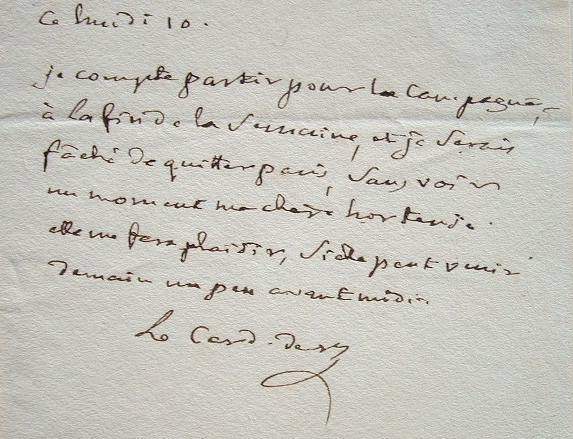 ce lundi 10.
je compte partir pour la campagne,
à la fin de la semaine, et je serais
fâché de quitter paris, sans voir
un moment ma chère hortense.
elle me fera plaisir, si elle peut venir
demain un peu avant midi.
Le Card.